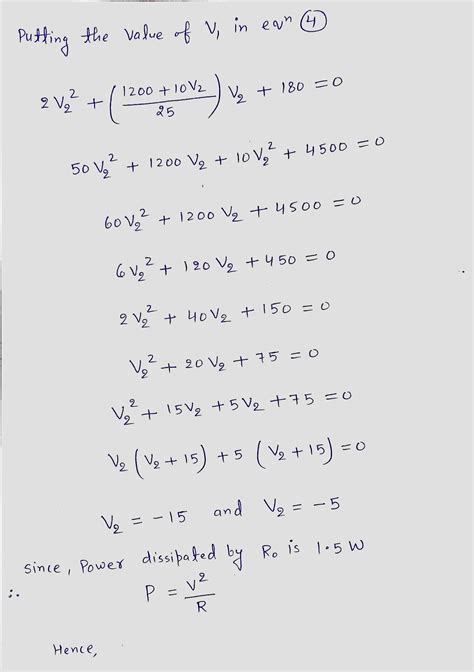 Putting the value of V₁ in eqⁿ ④
2V₂² + (1200 + 10V₂ / 25) V₂ + 180 = 0
50V₂² + 1200V₂ + 10V₂² + 4500 = 0
60V₂² + 1200V₂ + 4500 = 0
6V₂² + 120V₂ + 450 = 0
2V₂² + 40V₂ + 150 = 0
V₂² + 20V₂ + 75 = 0
V₂² + 15V₂ + 5V₂ + 75 = 0
V₂(V₂ + 15) + 5(V₂ + 15) = 0
V₂ = -15 and V₂ = -5
since, Power dissipated by R₀ is 1.5W
∴ P = V²/R
Hence,